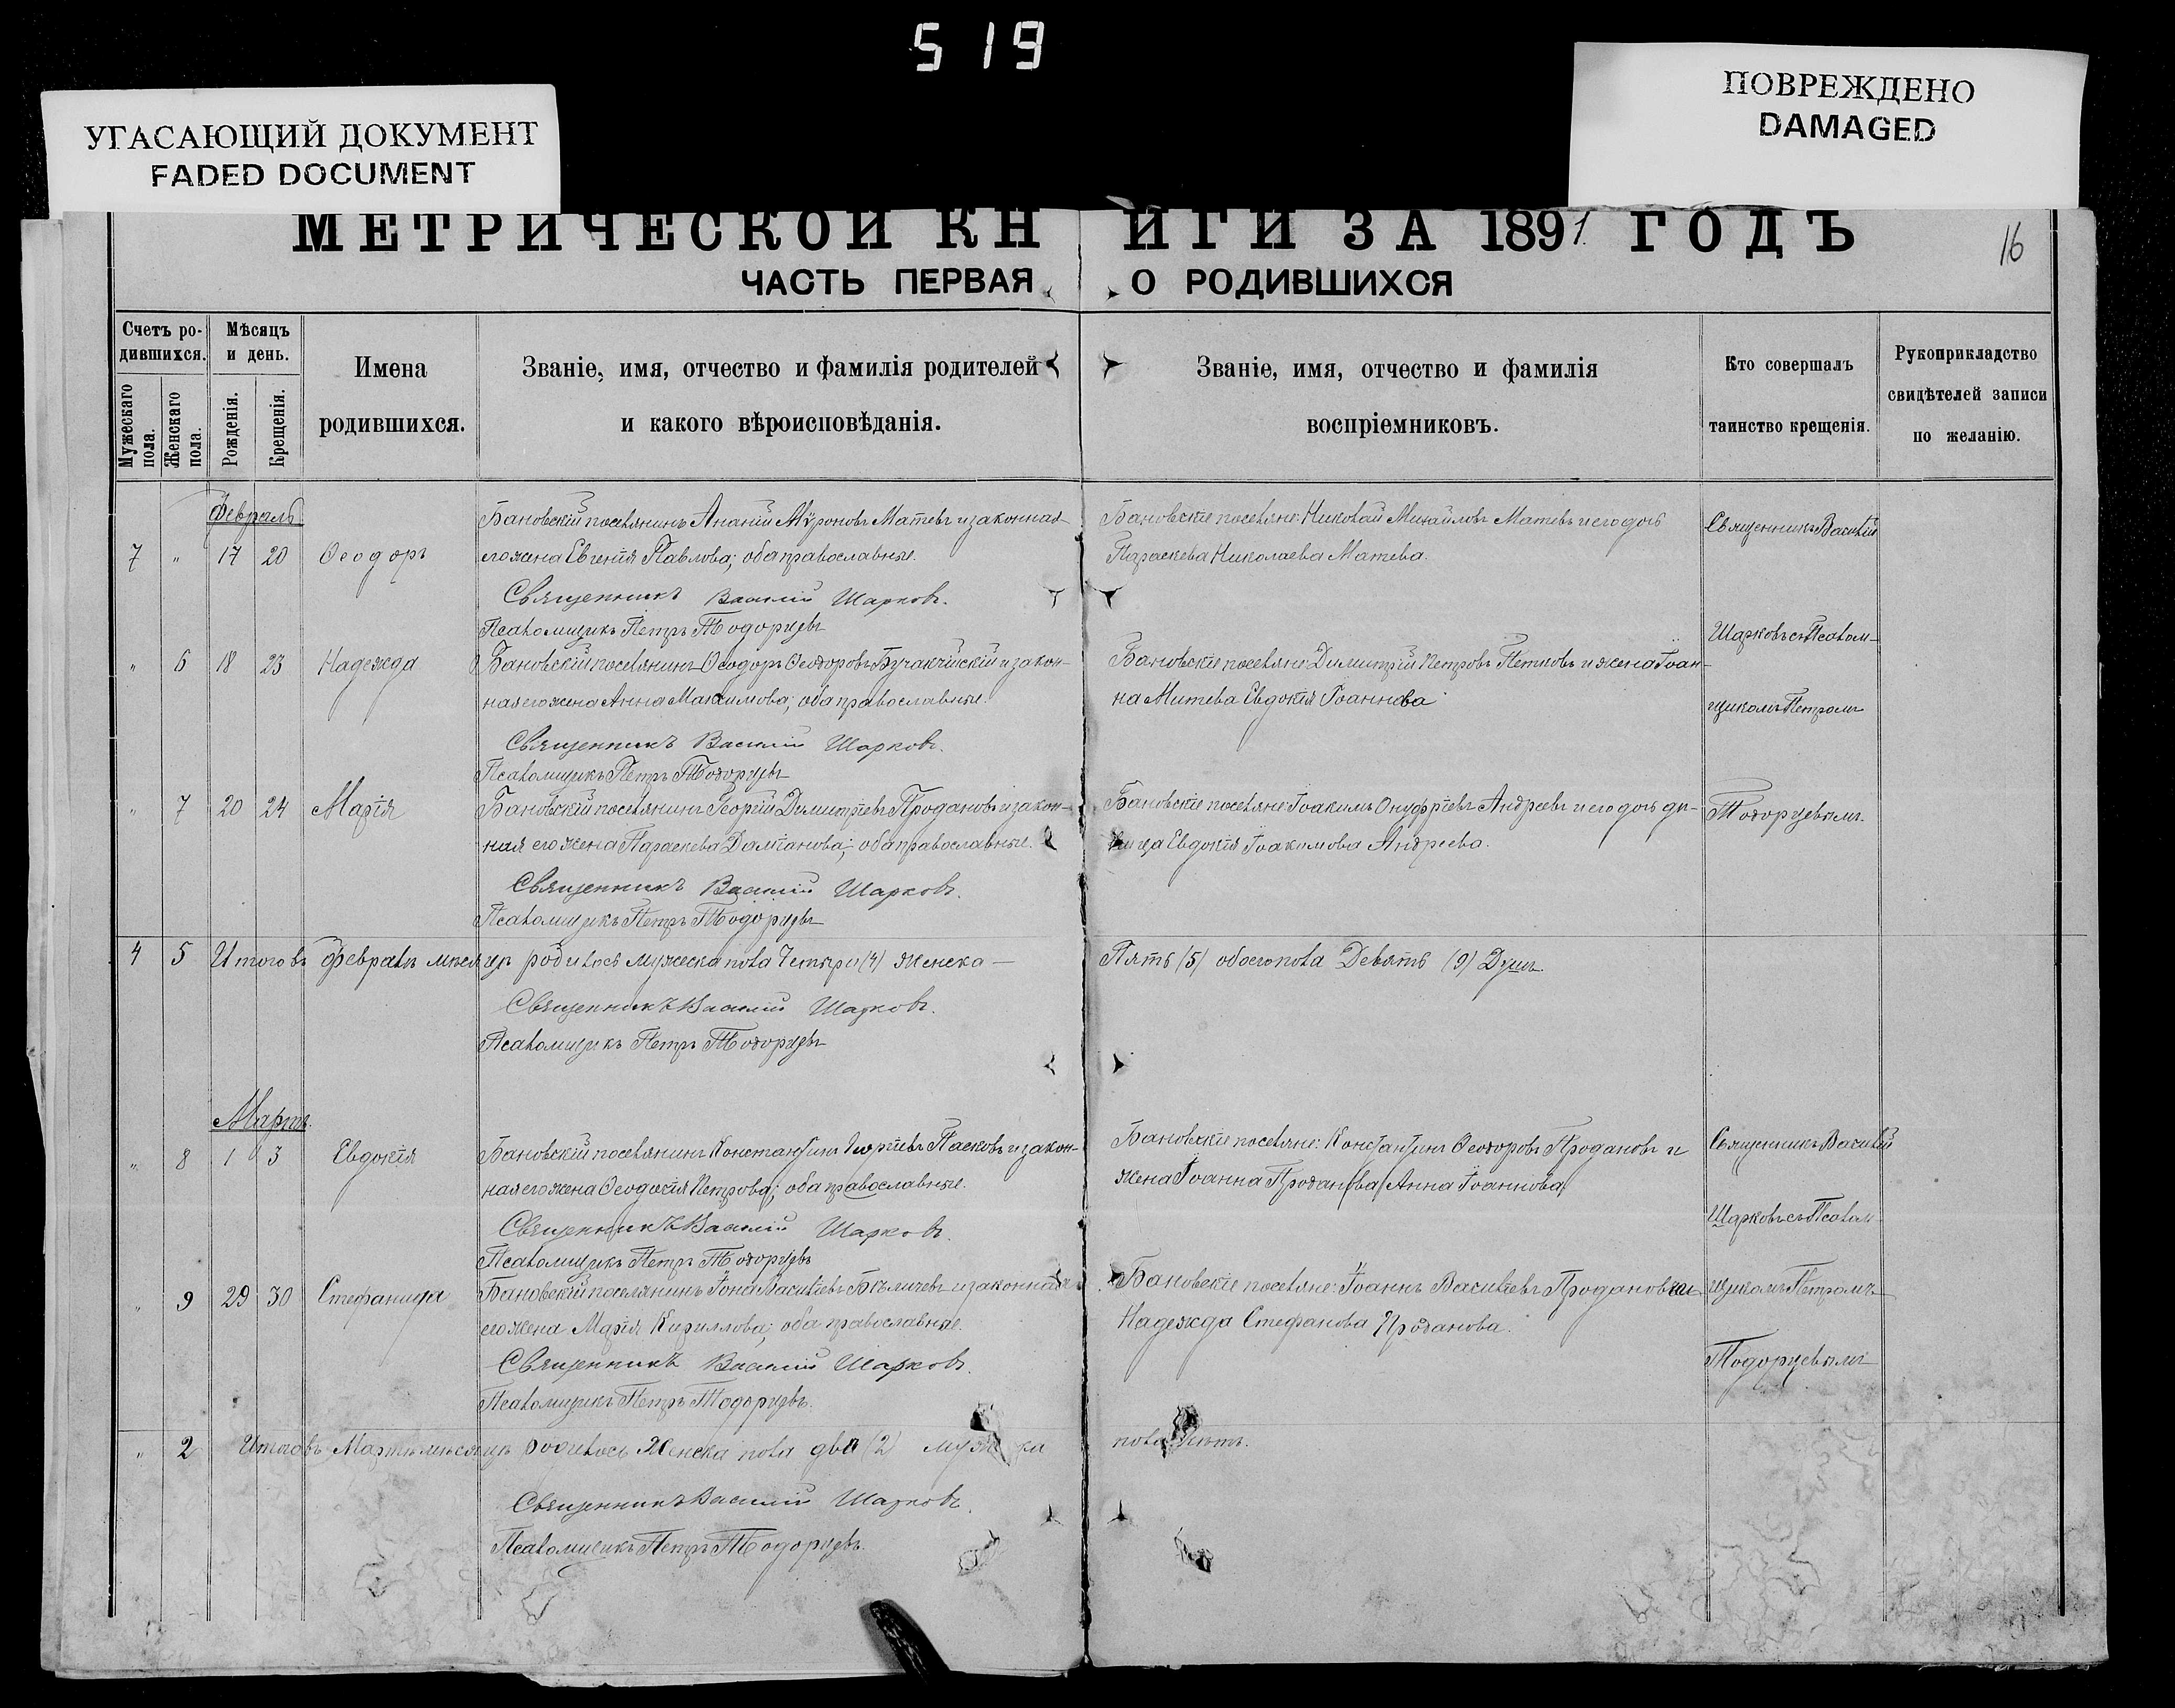 519
УГАСАЮЩИЙ ДОКУМЕНТ
FADED DOCUMENT
ПОВРЕЖДЕНО
DAMAGED
МЕТРИЧЕСКОЙ КНИГИ ЗА 1891 ГОДЪ
16
ЧАСТЬ ПЕРВАЯ О РОДИВШИХСЯ
Счетъ ро-
дившихся.
Мужескаго
пола.
Женскаго
пола.
Мѣсяцъ
и день.
Рожденія.
Крещенія.
Имена
родившихся.
Званіе, имя, отчество и фамилія родителей
и какого вѣроисповѣданія.
Званіе, имя, отчество и фамилія
воспріемниковъ.
Кто совершалъ
таинство крещенія.
Рукоприкладство
свидѣтелей записи
по желанію.
Февраль
7 " 17 20 Ѳеодоръ
Бановскій поселянинъ Ананій Мѵроновъ Матевъ и законная
его жена Евгенія Павлова; оба православные.
Священникъ Василій Шарковъ.
Псаломщикъ Петръ Тодорцевъ
Бановскіе поселяне: Николай Михайловъ Матевъ и его дочь
Параскева Николаева Матева.
Священникъ Василій
Шарковъ съ Псалом-
" 6 18 23 Надежда
Бановскій поселянинъ Ѳеодоръ Ѳеодоровъ Бучакчійскій и закон-
ная его жена Анна Максимова; оба православные.
Священникъ Василій Шарковъ.
Псаломщикъ Петръ Тодорцевъ
Бановскіе поселяне: Димитрій Петровъ Петковъ и жена Іоан-
на Митева Евдокія Іоаннова
щикомъ Петромъ
" 7 20 24 Марія
Бановскій поселянинъ Георгій Димитріевъ Продановъ и закон-
ная его жена Параскева Даміанова; оба православные.
Священникъ Василій Шарковъ.
Псаломщикъ Петръ Тодорцевъ
Бановскіе поселяне: Іоакимъ Онуфріевъ Андреевъ и его дочь дѣ-
вица Евдокія Іоакимова Андреева.
Тодорцевымъ.
4 5 Итого въ февралѣ мѣсяцѣ родилось мужеска пола Четыре (4) Женска — Пять (5) обоего пола Девять (9) Душъ
Священникъ Василій Шарковъ.
Псаломщикъ Петръ Тодорцевъ
Мартъ.
" 8 1 3 Евдокія
Бановскій поселянинъ Константинъ Георгіевъ Пасковъ и закон-
ная его жена Ѳеодосія Петрова; оба православные.
Священникъ Василій Шарковъ.
Псаломщикъ Петръ Тодорцевъ
Бановскіе поселяне: Константинъ Ѳеодоровъ Продановъ и
жена Іоанна Проданова Анна Іоаннова
Священникъ Василій
Шарковъ съ Псалом-
" 9 29 30 Стефанида
Бановскій поселянинъ Іона Василіевъ и законная
его жена Марія Кириллова; оба православные.
Священникъ Василій Шарковъ.
Псаломщикъ Петръ Тодорцевъ.
Бановскіе поселяне: Іоаннъ Василіевъ Продановъ и
Надежда Стефанова Проданова.
щикомъ Петромъ
Тодорцевымъ
" 2 Итого въ Мартѣ мѣсяцѣ родилось Женска пола два (2) мужеска пола нѣтъ.
Священникъ Василій Шарковъ.
Псаломщикъ Петръ Тодорцевъ.